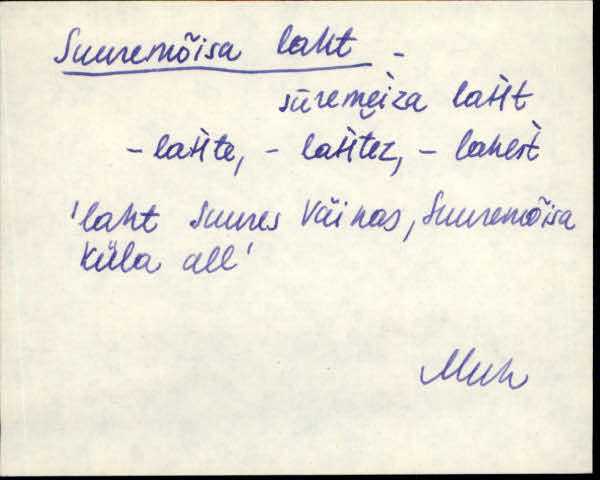 Suuremõisa laht -
sūremè̬iza lasit
- lasite, - lasitez, - lahest
'laht Suures Väinas, Suuremõisa
küla all'
Muh